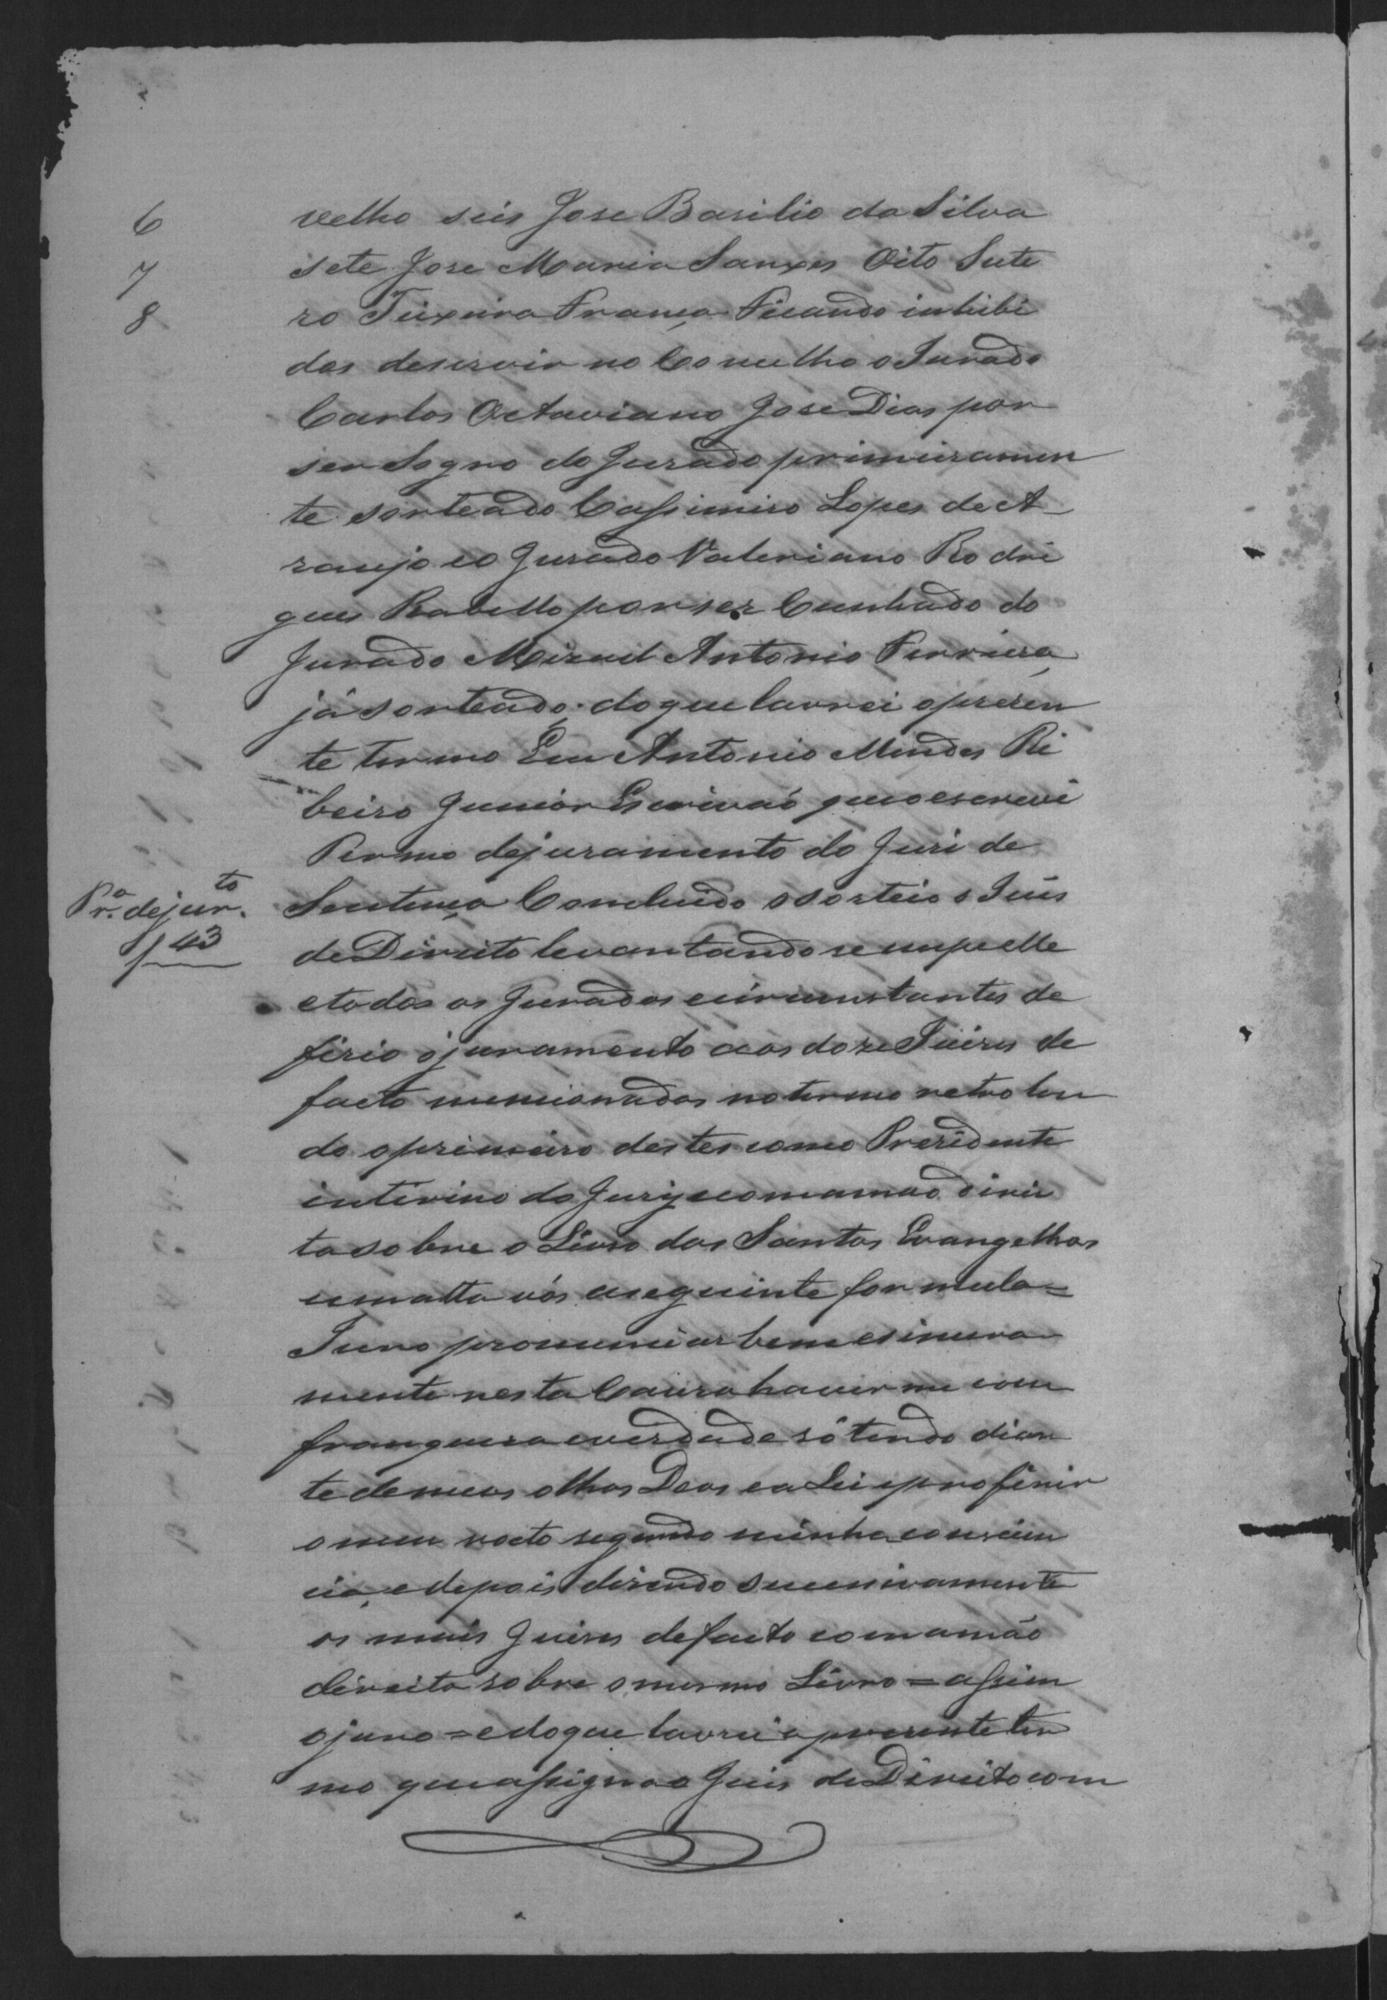 6 velho seis Jose Basilio da Silva
7 sete Jose Maria Sanxes Oito Sute
8 ro Teixeira França Ficando inhibi
dos deservir no Conselho o Jurado
Carlos Octaviano Jose Dias por
ser Sogro do Jurado primeiramen
te sorteado Cassimiro Lopes de A
raujo eo Jurado Valeriano Rodri
gues Rabello por ser Cunhado do
Jurado Miguel Antonio Ferreira
já sorteado. do que lavrei opresen
te termo Eu Antonio Mendes Ri
beiro Junior Escrivaõ que o escrevi
Termo dejuramento do Juri de
Tr.º dejur.to
f 43
Sentença Concluido osorteio o Juis
de Direito levantandose empelle
etodos os Jurados ecircunstantes de
firio ojuramento aos doze Juizes de
facto mencionados notermo retro len
do oprimeiro destes como Presidente
interino do Jury ecomamaõ direi
ta sobre o Livro dos Santos Evangelhos
emalta vós aseguinte formula =
Juro pronunciar bem esincera
mente nesta Causa haver me com
franqueza everdade só tendo dian
te demeus olhos Deos ea Lei eproferir
omeu voto segundo minha conscien
cia, edepois dizendo sucessivamente
os mais Juizes defacto com amão
direita sobre omesmo Livro = assim
ojuro = edoque lavrei opresente ter
mo que assigna o Juis de Direito com